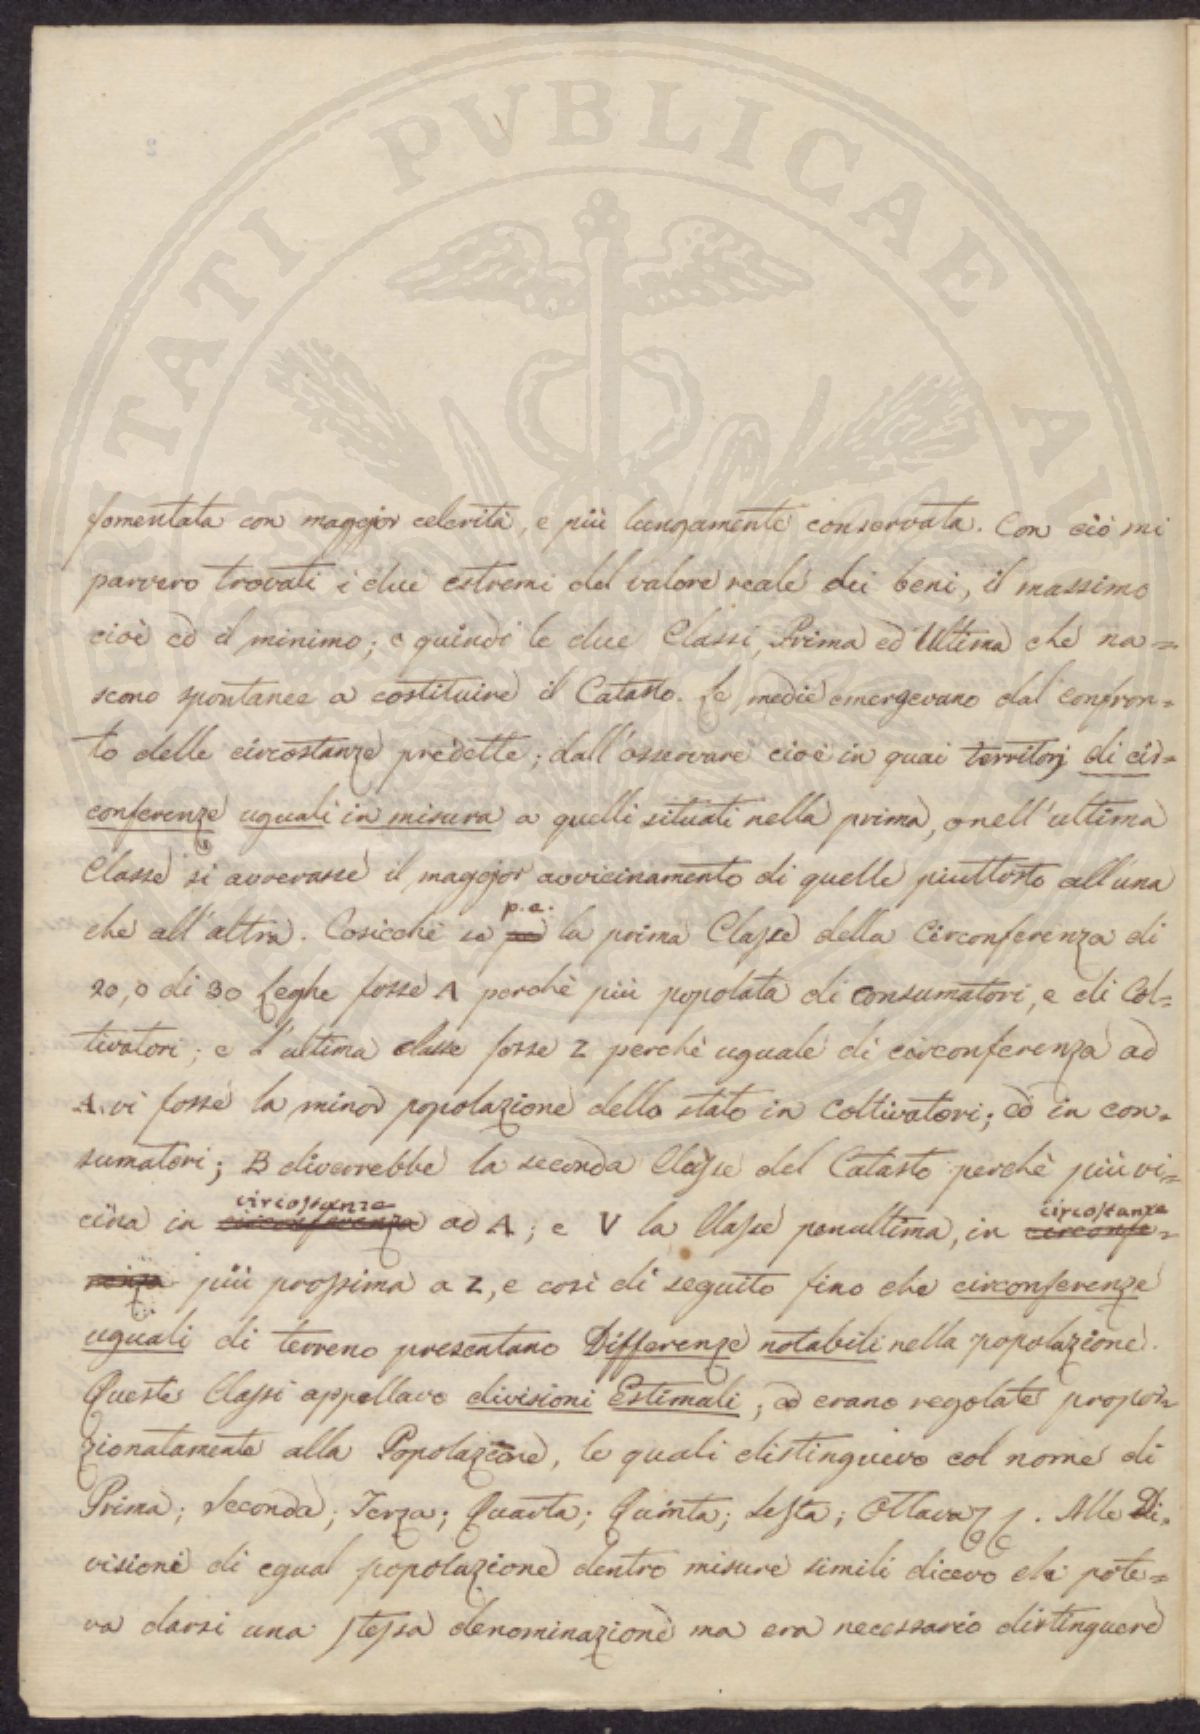 VTILITATI PVBLICAE AV
fomentata con maggior celerità, e più lungamente conservata. Con ciò mi
parvero trovati i due estremi del valore reale dei beni, il massimo
cioè ed il minimo; e quindi le due Classi, Prima ed Ultima che na=
scono spontanee a costituire il Catasto. Le medie emergevano dal confron=
to delle circostanze predette; dall'osservare cioè in quai territorj di cir=
conferenze uguali in misura a quelli situati nella prima, o nell'ultima
Classe si avverasse il maggior avvicinamento di quelle piuttosto all'una
che all'altra. Cosicchè se p.e. la prima Classe della Circonferenza di
20, o di 30 Leghe fosse A perchè più popolata di consumatori, e di Col=
tivatori; e l'ultima classe fosse Z perchè uguale di circonferenza ad
A. vi fosse la minor popolazione dello stato in Coltivatori; ed in con=
sumatori; B diverrebbe la seconda Classe del Catasto perchè più vi=
cina in circonferenza circostanze ad A; e V la Classe penultima, in circonfe= circostanze
renza più prossima a Z, e così di seguito fino che circonferenze
uguali di terreno presentano Differenze notabili nella popolazione.
Queste Classi appellavo divisioni Estimali; ed erano regolate propor
zionatamente alla Popolazione, le quali distinguevo col nome di
Prima; Seconda; Terza; Quarta; Quinta; Sesta; Ottava . Alle Di=
visioni di egual popolazione dentro misure simili dicevo che pote=
va darsi una stessa denominazione ma era necessario distinguere